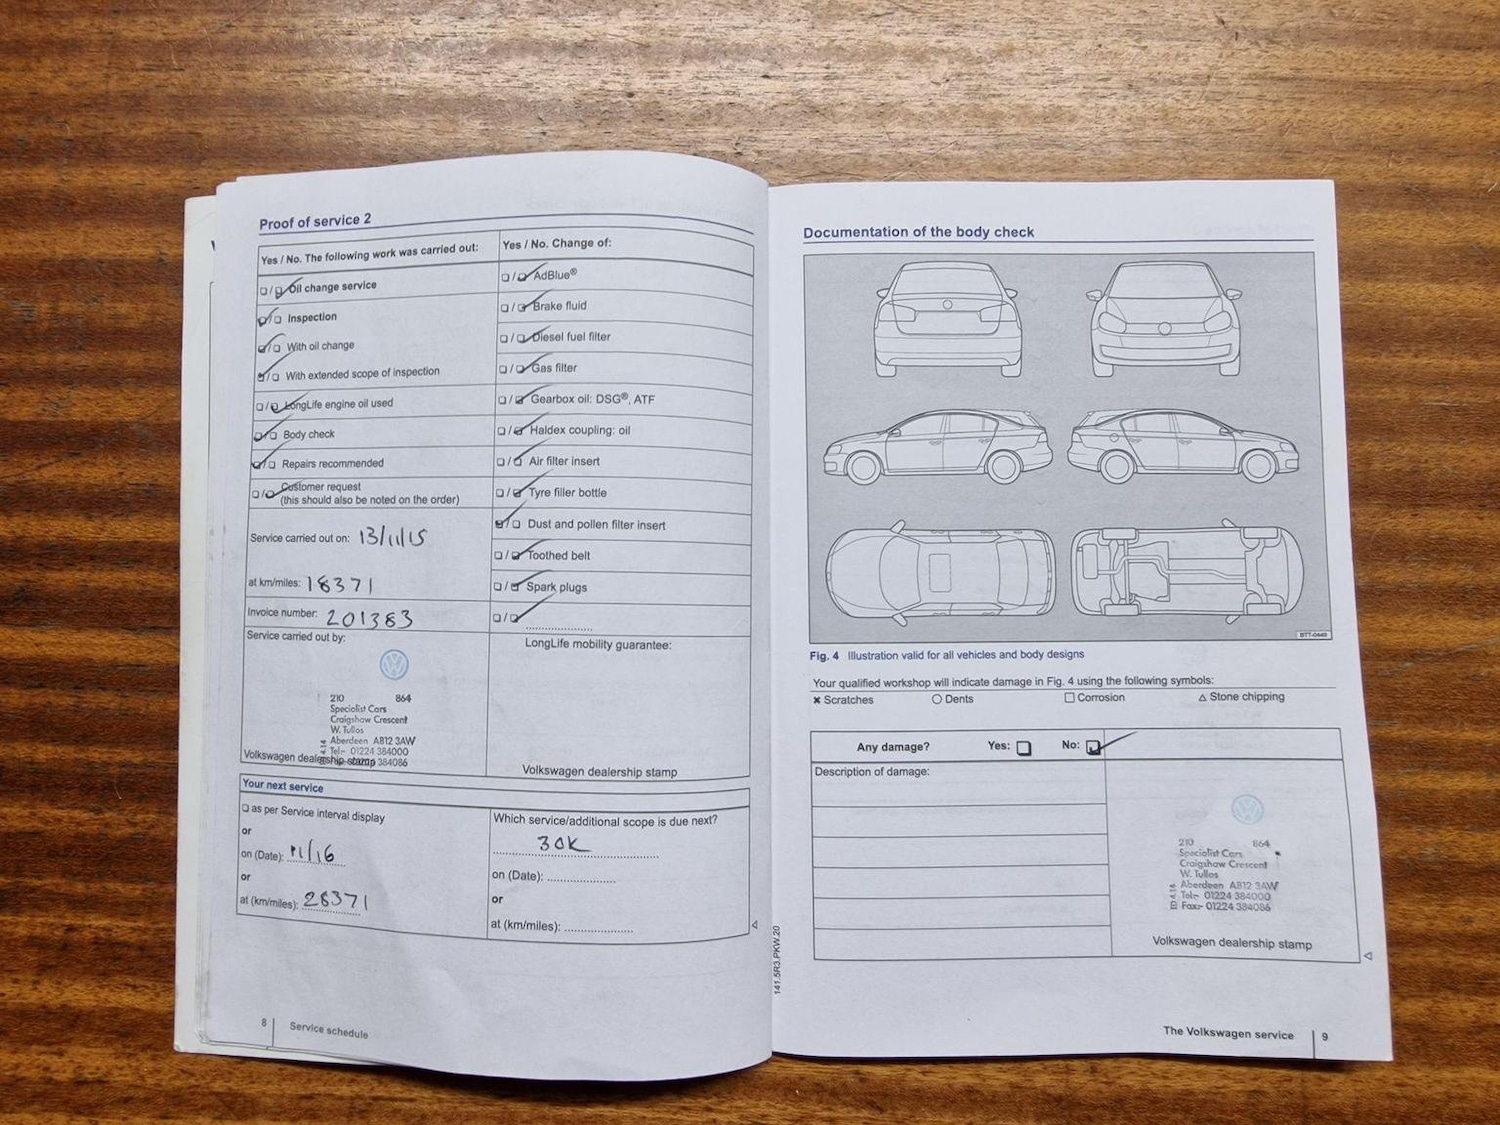 Proof of service 2
Yes / No. The following work was carried out:
Oil change service
Inspection
With oil change
With extended scope of inspection
LongLife engine oil used
Body check
Repairs recommended
Customer request
(this should also be noted on the order)
Service carried out on: 13/11/15
at km/miles: 18371
Invoice number: 201383
Service carried out by:
210 864
Specialist Cars
Craigshaw Crescent
W. Tullos
Aberdeen AB12 3AW
Tel:- 01224 384000
384086
Volkswagen dealership stamp
Yes / No. Change of:
AdBlue®
Brake fluid
Diesel fuel filter
Gas filter
Gearbox oil: DSG®, ATF
Haldex coupling: oil
Air filter insert
Tyre filler bottle
Dust and pollen filter insert
Toothed belt
Spark plugs
LongLife mobility guarantee:
Volkswagen dealership stamp
Your next service
as per Service interval display
or
on (Date): 11/16
or
at (km/miles): 28371
Which service/additional scope is due next?
30K
on (Date):
or
at (km/miles):
8 Service schedule
141.5R3.PKW.20
Documentation of the body check
BTT-0449
Fig. 4 Illustration valid for all vehicles and body designs
Your qualified workshop will indicate damage in Fig. 4 using the following symbols:
✖ Scratches ○ Dents □ Corrosion △ Stone chipping
Any damage? Yes: No:
Description of damage:
210 864
Specialist Cars
Craigshaw Crescent
W. Tullos
Aberdeen AB12 3AW
Tel:- 01224 384000
Fax:- 01224 384086
Volkswagen dealership stamp
The Volkswagen service 9